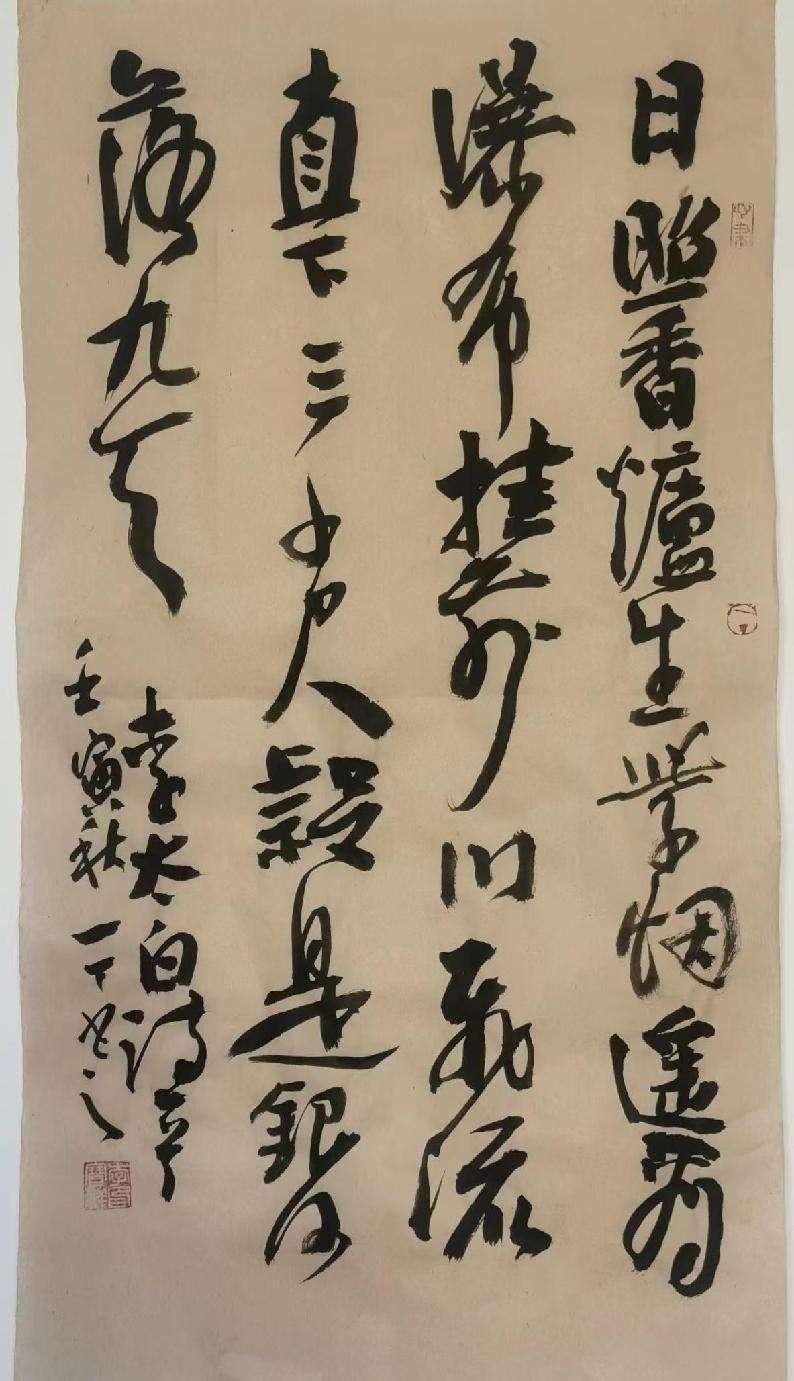 日照香爐生紫烟遥看
瀑布挂前川飛流
直下三千尺疑是銀河
落九天
李太白詩章
壬寅秋一丁书之